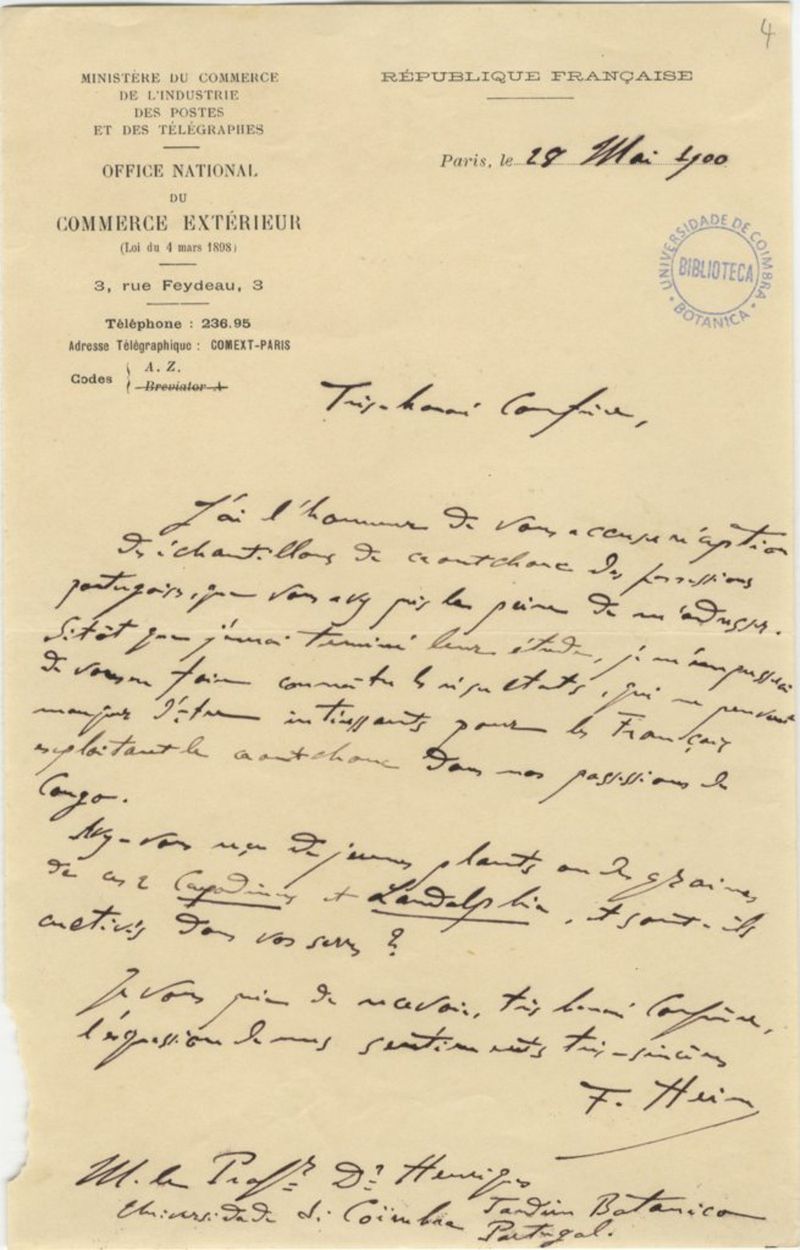 4
MINISTÈRE DU COMMERCE
DE L'INDUSTRIE
DES POSTES
ET DES TÉLÉGRAPHES
OFFICE NATIONAL
DU
COMMERCE EXTÉRIEUR
(Loi du 4 mars 1898)
3, rue Feydeau, 3
Téléphone : 236.95
Adresse Télégraphique : COMEXT-PARIS
Codes { A. Z.
Breviator A
RÉPUBLIQUE FRANÇAISE
Paris, le 28 Mai 1900
UNIVERSIDADE DE COIMBRA
BIBLIOTECA
BOTANICA
Très-honoré Confrère,
J'ai l'honneur de vous accuser réception
des échantillons de caoutchouc des possessions
portugaises, que vous avez pris la peine de m'adresser.
Sitôt que j'aurai terminé leur étude, je m'empresserai
de vous en faire connaître les résultats, qui ne peuvent
manquer d'être intéressants pour les Français
exploitant le caoutchouc dans nos possessions du
Congo.
Avez-vous reçu de jeunes plants ou des graines
de ces 2 Carpodinus et Landolphia, et sont-ils
cultivés dans vos serres ?
Je vous prie de recevoir, très honoré Confrère,
l'expression de mes sentiments très-sincères
F. Heim
M. le Profr Dr Henriques
Universidade de Coimbra Jardim Botanico
Portugal.